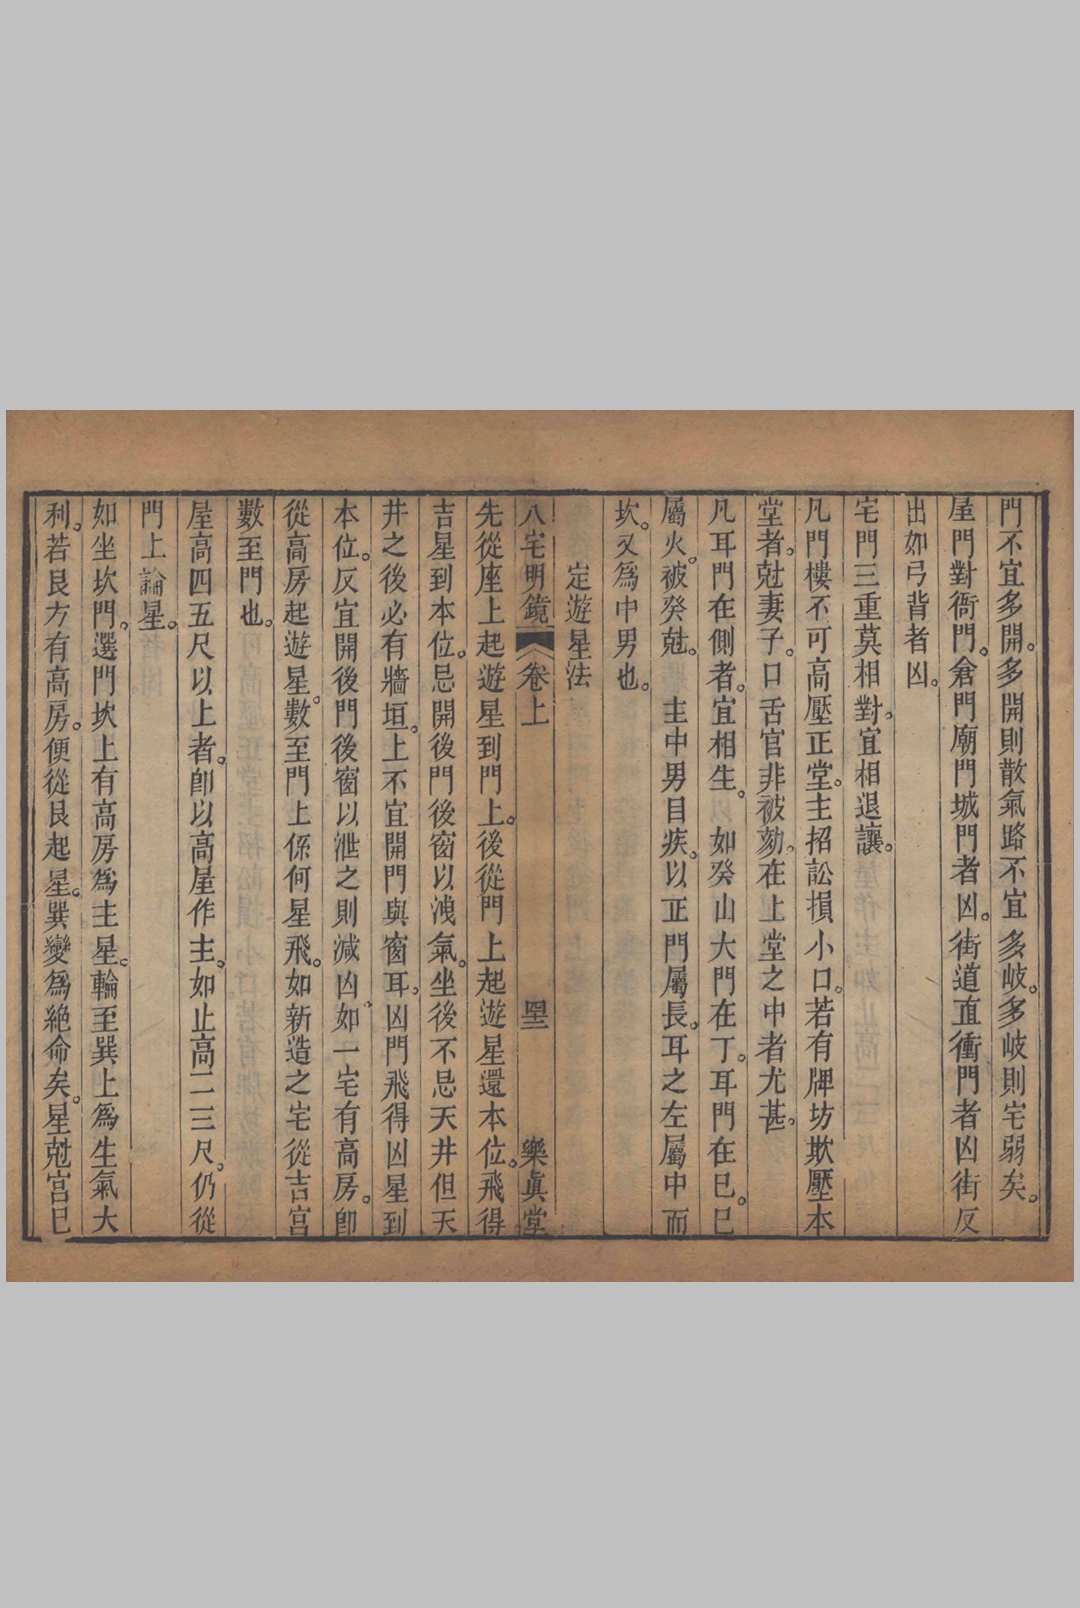 門不宜多開。多開則散氣路不宜多岐。多岐則宅弱矣。
屋門對衙門。倉門廟門城門者凶。街道直衝門者凶街反
出如弓背者凶。
宅門三重莫相對。宜相退讓。
凡門樓不可高壓正堂。主招訟損小口。若有牌坊欺壓本
堂者。尅妻子。口舌官非被劾。在上堂之中者尤甚。
凡耳門在側者。宜相生。如癸山大門在丁。耳門在巳。巳
屬火。被癸尅。主中男目疾。以正門屬長。耳之左屬中而
坎。又為中男也。
定遊星法
八宅明鏡 卷上 罡 樂真堂
先從座上起遊星到門上。後從門上起遊星還本位。飛得
吉星到本位。忌開後門後窗以洩氣。坐後不忌天井但天
井之後必有牆垣。上不宜開門與窗耳。凶門飛得凶星到
本位。反宜開後門後窗以泄之則減凶。如一宅有高房。卽
從高房起遊星。數至門上係何星飛。如新造之宅從吉宮
數至門也。
屋高四五尺以上者。卽以高屋作主。如止高二三尺。仍從
門上論星。
如坐坎門。選門坎上有高房為主星。輪至巽上為生氣大
利。若艮方有高房。便從艮起星。巽變為絕命矣。星尅宮巳